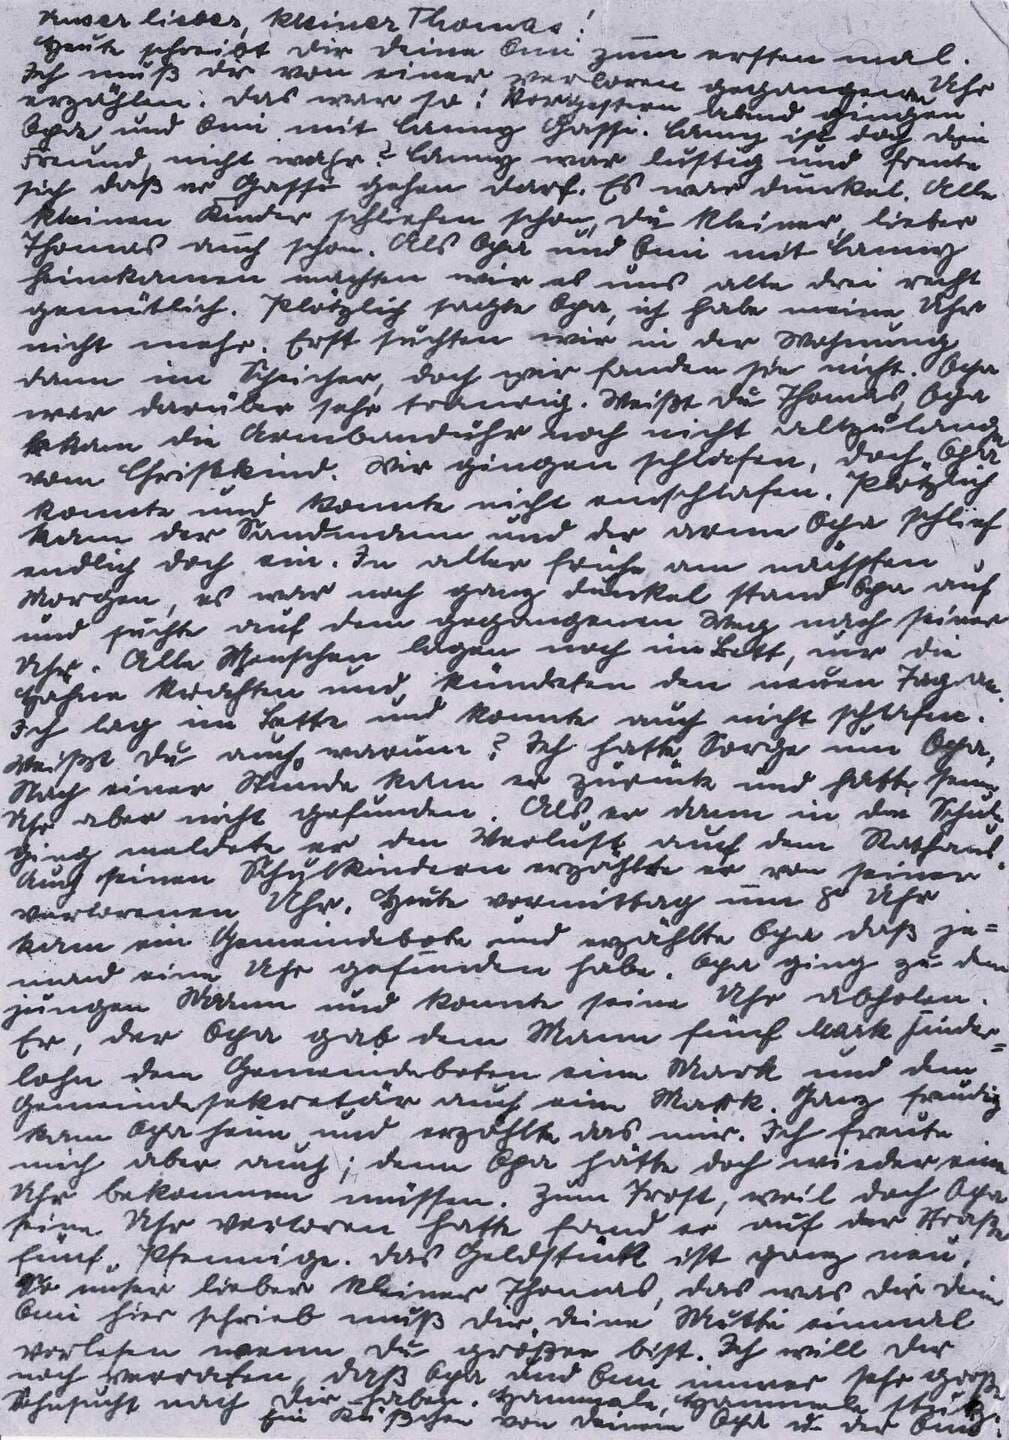 Unser lieber, kleiner Thomas!
Heute schreibt dir deine Omi zum ersten mal.
Ich muß dir von einer verloren gegangenen Uhr
erzählen. Das war so: Vorgestern abend gingen
Opa und Omi mit Lanny Gassi. Lanny ist doch dein
Freund, nicht wahr? Lanny war lustig und freute
sich daß er Gassi gehen darf. Es war dunkel. Alle
kleinen Kinder schliefen schon, du kleiner, lieber
Thomas auch schon. Als Opa und Omi mit Lanny
heimkamen machten wir es uns alle drei recht
gemütlich. Plötzlich sagte Opa, ich habe meine Uhr
nicht mehr. Erst suchten wir in der Wohnung
dann im Speicher, doch wir fanden sie nicht. Opa
war darüber sehr traurig. Weißt du Thomas, Opa
bekam die Armbanduhr noch nicht allzulange
vom Christkind. Wir gingen schlafen, doch Opa
konnte und konnte nicht einschlafen. Plötzlich
kam der Sandmann und der arme Opa schlief
endlich doch ein. In aller frühe am nächsten
Morgen, es war noch ganz dunkel stand Opa auf
und suchte auf dem gegangenen Weg nach seiner
Uhr. Alle Menschen lagen noch im Bett, nur die
Hähne krähten und kündeten den neuen Tag an.
Ich lag im Bette und konnte auch nicht schlafen.
Weißt du auch warum? Ich hatte Sorge um Opa,
Nach einer Stunde kam er zurück und hatte seine
Uhr aber nicht gefunden. Als er dann in die Schule
ging meldete er den Verlust auch dem Rathaus.
Auch seinen Schulkindern erzählte er von seiner
verlorenen Uhr. Heute vormittag um 8 Uhr
kam ein Gemeindebote und erzählte Opa daß je=
mand eine Uhr gefunden habe. Opa ging zu dem
jungen Mann und konnte seine Uhr abholen.
Er, der Opa gab dem Mann fünf Mark Finder=
lohn dem Gemeindeboten eine Mark und dem
Gemeindesekretär auch eine Mark. Ganz freudig
kam Opa heim und erzählte das mir. Ich freute
mich aber auch; denn Opa hätte doch wieder eine
Uhr bekommen müssen. Zum Trost, weil doch Opa
seine Uhr verloren hatte fand er auf der Straße
fünf Pfennige. Das Geldstück ist ganz neu.
So unser lieber kleiner Thomas, das was dir deine
Omi hier schrieb muß dir deine Mutti einmal
vorlesen wenn du größer bist. Ich will dir
noch verraten, daß Opa und Omi immer sehr große
Sehnsucht nach dir haben. Hammele, Hammele
Ein Küßchen von deinem Opa u. der Omi.